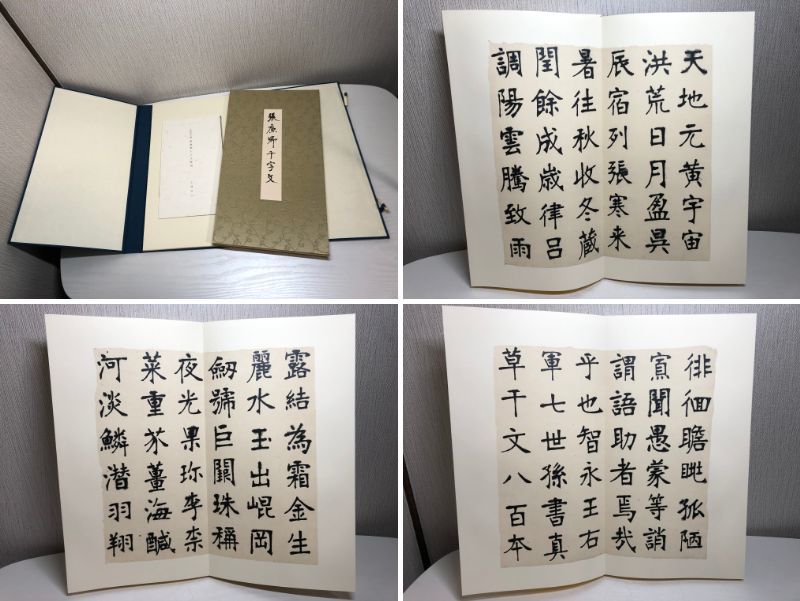 張廉卿千字文
天地元黄宇宙
洪荒日月盈昃
辰宿列張寒来
暑往秋收冬蔵
閏餘成歲律呂
調陽雲騰致雨
露結為霜金生
麗水玉出崐岡
劒號巨闕珠稱
夜光果珎李柰
菜重芥薑海醎
河淡鱗潜羽翔
徘徊瞻眺孤陋
寡聞愚蒙等誚
謂語助者焉哉
乎也智永王右
軍七世孫書真
草千文八百本